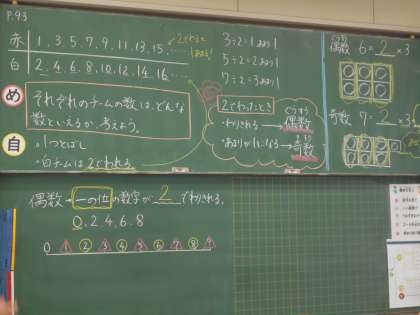 P.93
赤 1, 3, 5, 7, 9, 11, 13, 15, ……
白 2, 4, 6, 8, 10, 12, 14, 16, ……
2でわると
1あまる!
め それぞれのチームの数は、どんな
数といえるか、考えよう。
自 ・1つとばし
・白チームは2でわれる
3÷2=1あまり1
5÷2=2あまり1
7÷2=3あまり1
2でわったとき
・わりきれる → 偶数
ぐうすう
・あまりが1になる → 奇数
きすう
ぐうすう
偶数 6=2×3
奇数 7=2×3
偶数→一の位の数字が2でわりきれる。
0, 2, 4, 6, 8
0 1 2 3 4 5 6 7 8 9